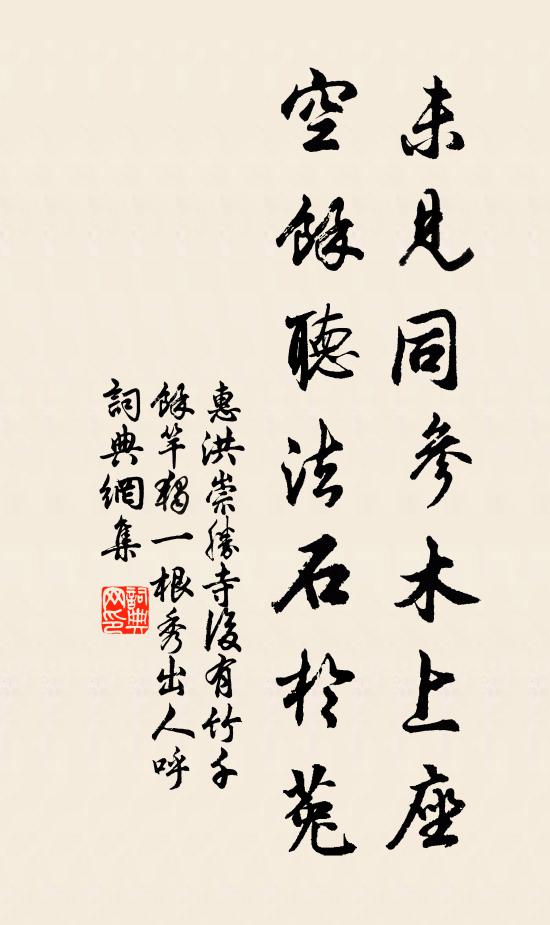 未見同參木上座
空餘聽法石於菟
惠洪崇勝寺後有竹千
餘竿獨一根秀出人呼
詞典網集
詞典
网印